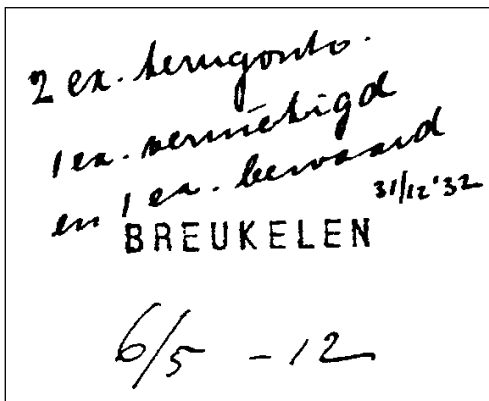 2 ex. terugontv.
1 ex. vernietigd
en 1 ex. bewaard
31/12 '32
BREUKELEN
6/5 - 12